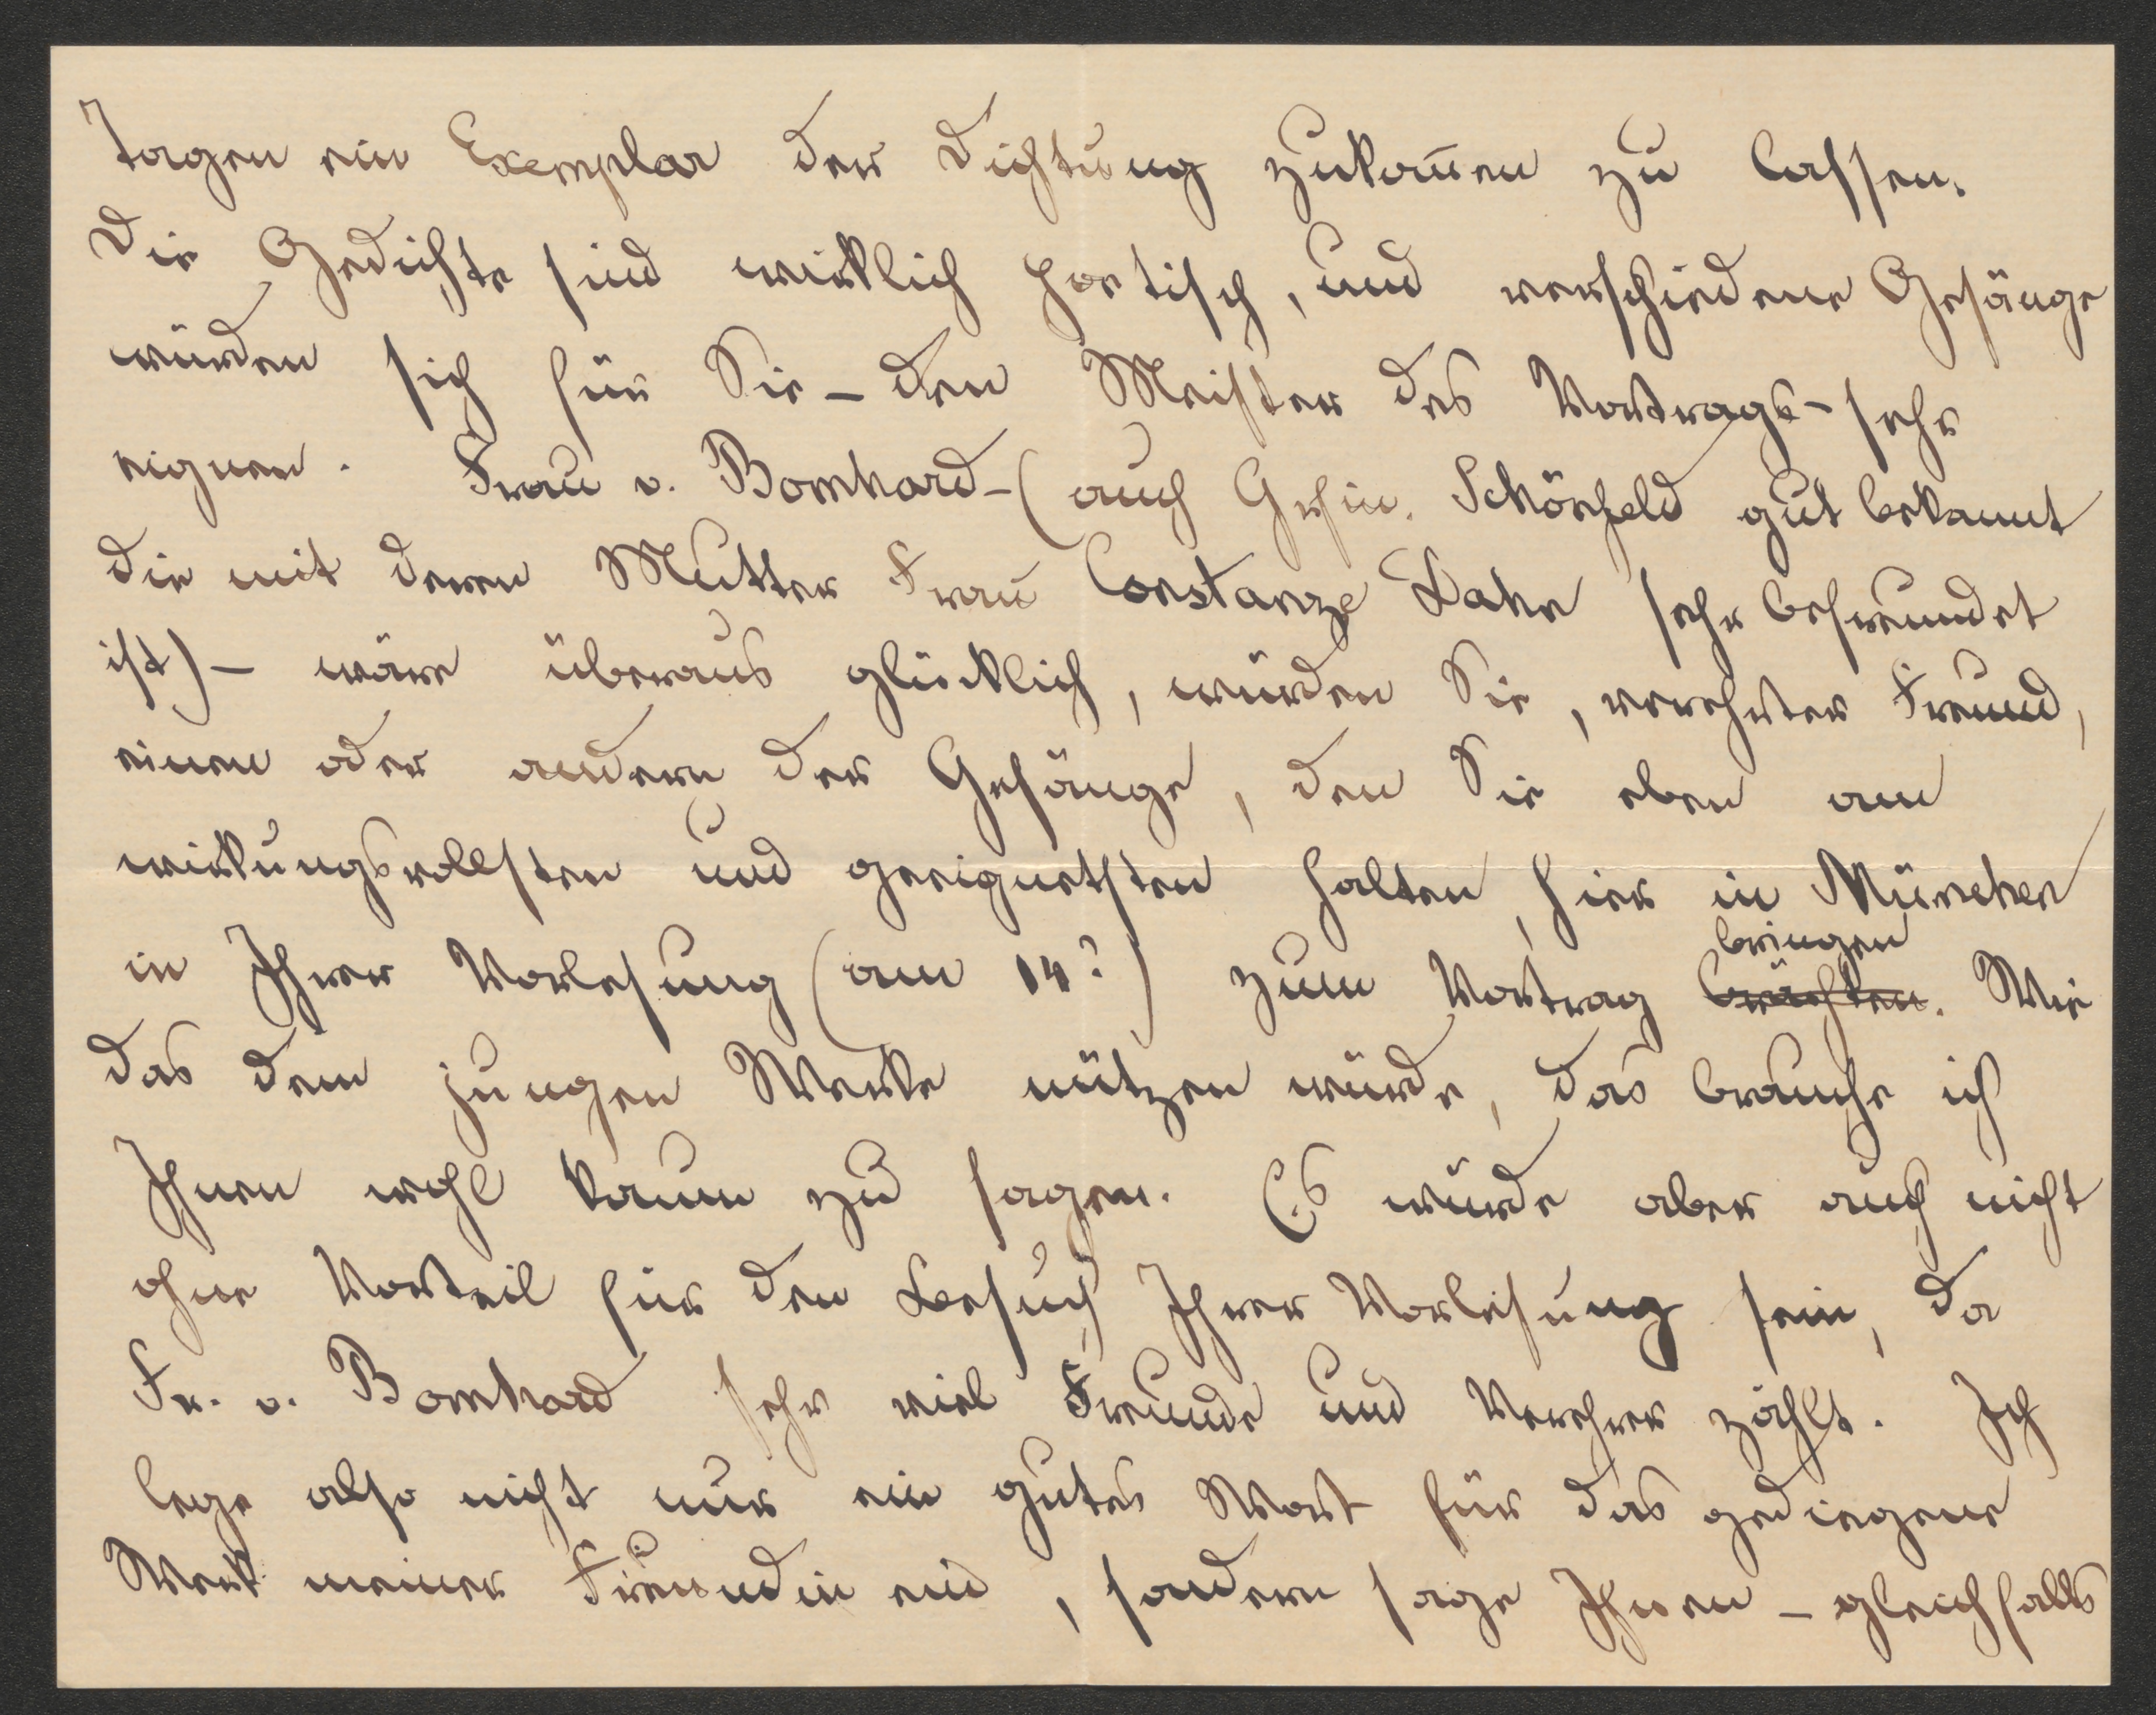 Tagen ein Exemplar der Dichtung zukom̅en zu lassen.
Die Gedichte sind wirklich poetisch, und verschiedene Gesänge
würden sich für Sie – den Meister des Vortrags – sehr
eignen. Frau v. Bomhard – (auch Gräfin. Schönfeld gut bekannt
die mit deren Mutter Frau Constanze Dahn sehr befreundet
ist) – wäre überaus glücklich, würden Sie, verehrter Freund,
einen oder andern der Gesänge, den Sie eben am
wirkungsvollsten und geeignetsten halten, hier in München
in Ihrer Vorlesung (am 14?) zum Vortrag brächten bringen. Wie
das dem jungen Werke nützen würde, das brauche ich
Ihnen wohl kaum zu sagen. Es würde aber auch nicht
ohne Vorteil für den Besuch Ihrer Vorlesung sein, da
Fr. v. Bomhard sehr viel Freunde und Verehrer zählt. Ich
lege also nicht nur ein gutes Wort für das gediegene
Werk meiner Freundin ein, sondern sage Ihnen – gleichfalls